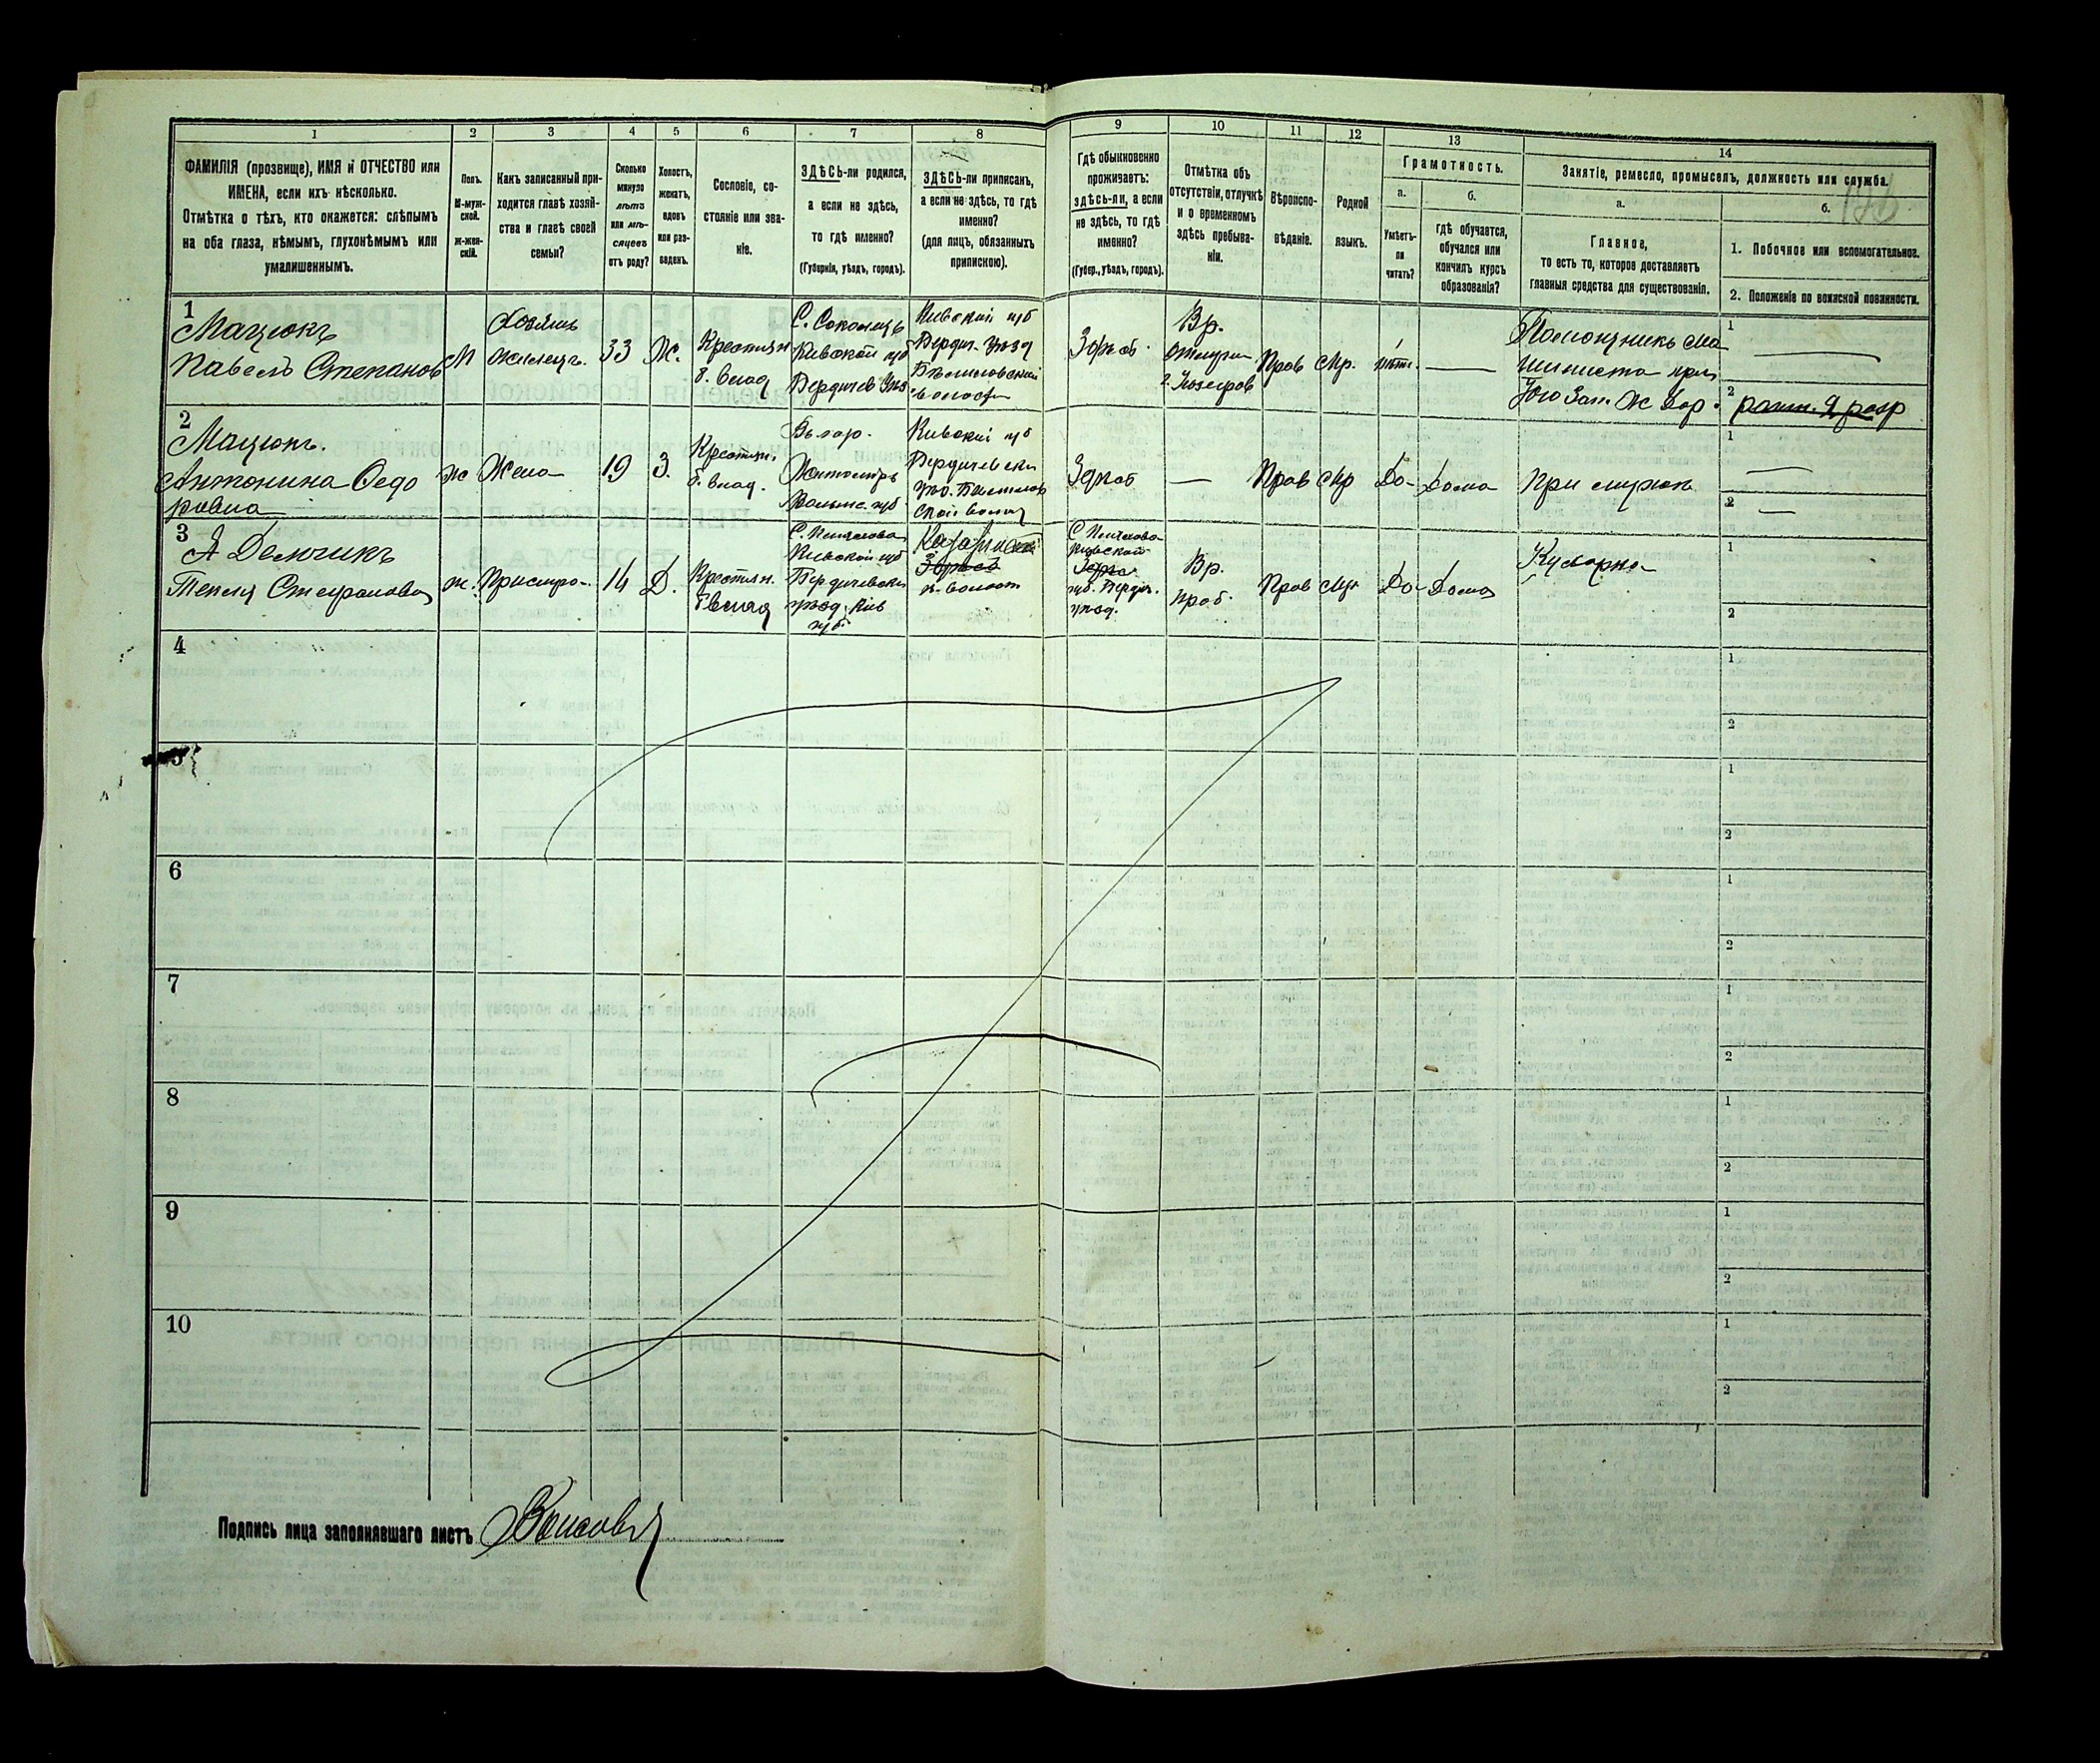 1 2 3 4 5 6 7 8 9 10 11 12 13 14
ФАМИЛІЯ (прозвище), ИМЯ и ОТЧЕСТВО или
ИМЕНА, если ихъ нѣсколько.
Отмѣтка о тѣхъ, кто окажется: слѣпымъ
на оба глаза, нѣмымъ, глухонѣмымъ или
умалишеннымъ.
Полъ.
М-муж-
ской.
Ж-жен-
скій.
Какъ записанный при-
ходится главѣ хозяй-
ства и главѣ своей
семьи?
Сколько
минуло
лѣтъ
или мѣ-
сяцевъ
отъ роду?
Холостъ,
женатъ,
вдовъ
или раз-
веденъ.
Сословіе, со-
стояніе или зва-
ніе.
ЗДѢСЬ-ли родился,
а если не здѣсь,
то гдѣ именно?
(Губернія, уѣздъ, городъ).
ЗДѢСЬ-ли приписанъ,
а если не здѣсь, то гдѣ
именно?
(для лицъ, обязанныхъ
припискою).
Гдѣ обыкновенно
проживаетъ:
здѣсь-ли, а если
не здѣсь, то гдѣ
именно?
(Губер., уѣздъ, городъ).
Отмѣтка объ
отсутствіи, отлучкѣ
и о временномъ
здѣсь пребыва-
ніи.
Вѣроиспо-
вѣданіе.
Родной
языкъ.
Грамотность.
а.
Умѣетъ-
ли
читать?
б.
гдѣ обучается,
обучался или
кончилъ курсъ
образованія?
Занятіе, ремесло, промыселъ, должность или служба.
а.
Главное,
то есть то, которое доставляетъ
главныя средства для существованія.
б.
1. Побочное или вспомогательное.
2. Положеніе по воинской повинности.
1
Мацюкъ
Павелъ Степановъ
М
Хозяинъ
жилецъ.
33
Ж.
Крестьян
б. влад
С.
Кивской губ
Бердичев Уѣз
Кивской губ
Бердич. Уѣзд
волости
Здѣсь
Вр.
Прав
Мр.
нѣт.
Помощникъ Ма
шиниста при
Юго Зап. Ж Дор.
1
2
2
Мацюкъ.
Антонина Федо
ровна
Ж
Жена
19
З.
Крестьян.
б. влад.
Въ гор.
Житомiръ
Волынс. губ
Кивской губ
Бердичевски
Здѣсь
Прав
Мр
Да
Дома
При мужѣ
1
2
3
Демчикъ
Текля Стефанова
ж.
Прислуга
14
Д.
Крестьян.
б влад
Кивской губ
Бердичевски
уѣзд. Кив
губ.
волост
Кивской
губ. Бердич.
уѣзд.
Вр.
Преб.
Прав
Мр
Да
Дома
Кухарка
1
2
4
1
2
5
1
2
6
1
2
7
1
2
8
1
2
9
1
2
10
1
2
Подпись лица заполнявшаго листъ